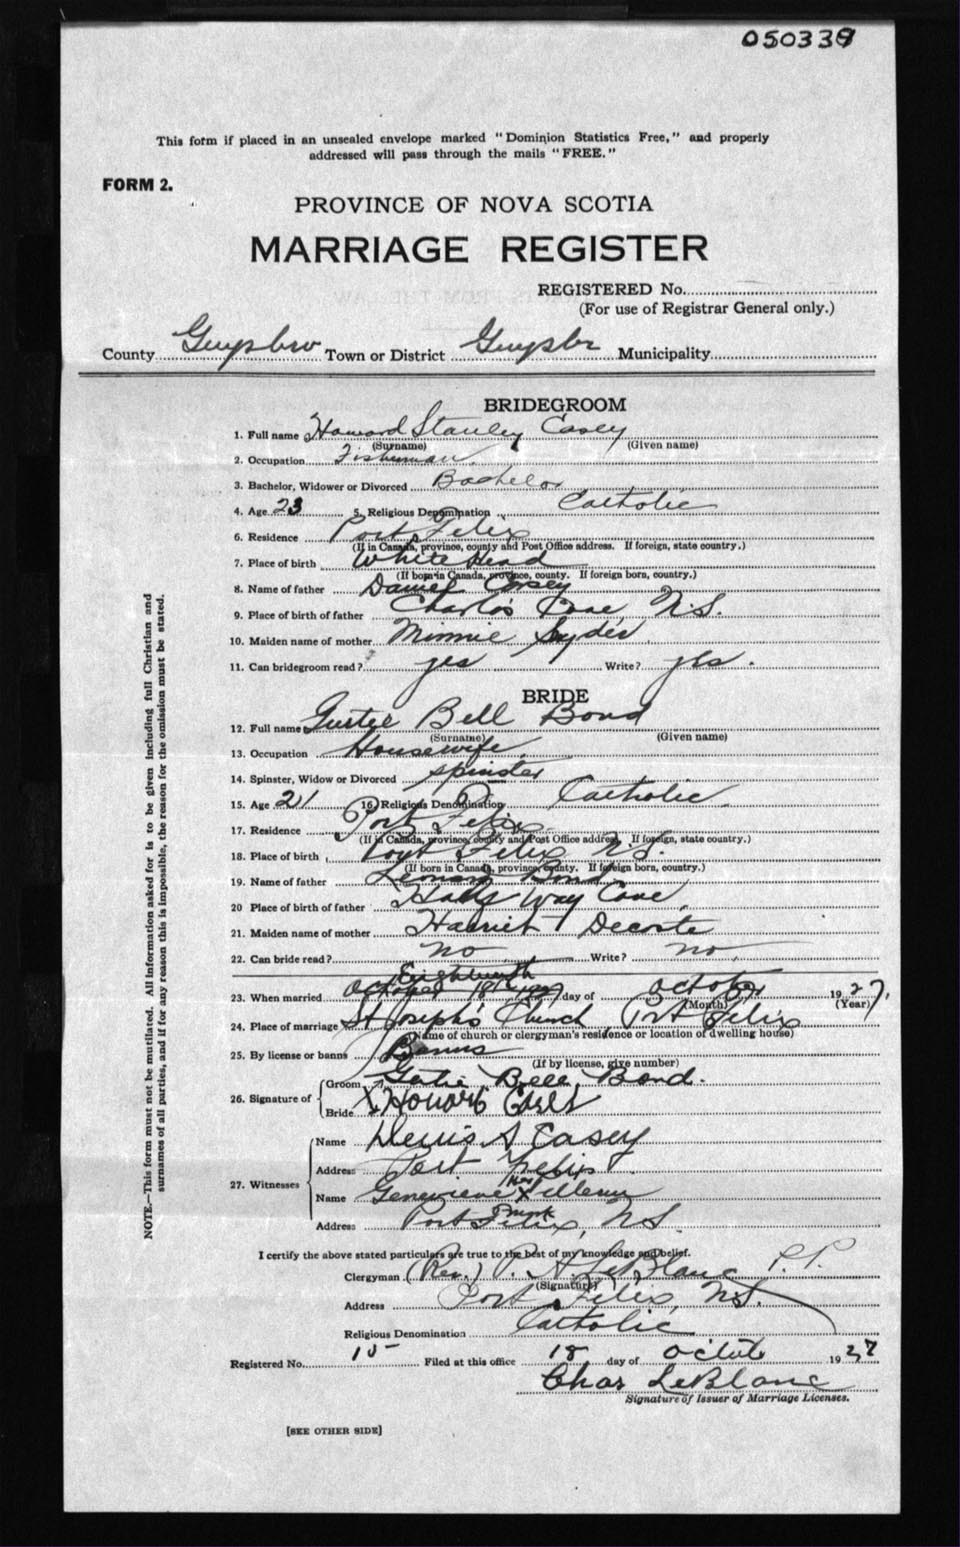 050339
This form if placed in an unsealed envelope marked "Dominion Statistics Free," and properly
addressed will pass through the mails "FREE."
FORM 2.
PROVINCE OF NOVA SCOTIA
MARRIAGE REGISTER
REGISTERED No.
(For use of Registrar General only.)
County Guysboro Town or District Guysbr Municipality
BRIDEGROOM
1. Full name Howard Stanley Casey
(Surname) (Given name)
2. Occupation Fisherman
3. Bachelor, Widower or Divorced Bachelor
4. Age 23 5. Religious Denomination Catholic
6. Residence Port Felix
(If in Canada, province, county and Post Office address. If foreign, state country.)
7. Place of birth White Head
(If born in Canada, province, county. If foreign born, country.)
8. Name of father Daniel Casey
9. Place of birth of father Charlos Cove, N.S.
10. Maiden name of mother Minnie
11. Can bridegroom read? yes Write? yes.
BRIDE
12. Full name Bell Bond
(Surname) (Given name)
13. Occupation Housewife
14. Spinster, Widow or Divorced spinster
15. Age 21 16. Religious Denomination Catholic
17. Residence Port Felix
(If in Canada, province, county and Post Office address, If foreign, state country.)
18. Place of birth Port Felix N.S.
(If born in Canada, province, county. If foreign born, country.)
19. Name of father Bond
20 Place of birth of father Way Cove,
21. Maiden name of mother Harriet Decoste
22. Can bride read? no Write? no,
Eighteenth
23. When married October 18 1927 day of October 1927,
(Month) (Year)
24. Place of marriage St Joseph's Church Port Felix
(Name of church or clergyman's residence or location of dwelling house)
25. By license or banns Banns
(If by license, give number)
26. Signature of Groom Bell Bond.
Bride X Howard
27. Witnesses
Name Denis S Casey
Address Port Felix
her
Name Genevieve X
mark
Address Port Felix, N.S.
I certify the above stated particulars are true to the best of my knowledge and belief.
Clergyman (Rev.) P. A. LeBlanc P.P.
(Signature)
Address Port Felix, N.S.
Religious Denomination Catholic
Registered No. 15 Filed at this office 18 day of October 1927
Chas LeBlanc
Signature of Issuer of Marriage Licenses.
[SEE OTHER SIDE]
NOTE.—This form must not be mutilated. All information asked for is to be given including full Christian and
surnames of all parties, and if for any reason this is impossible, the reason for the omission must be stated.